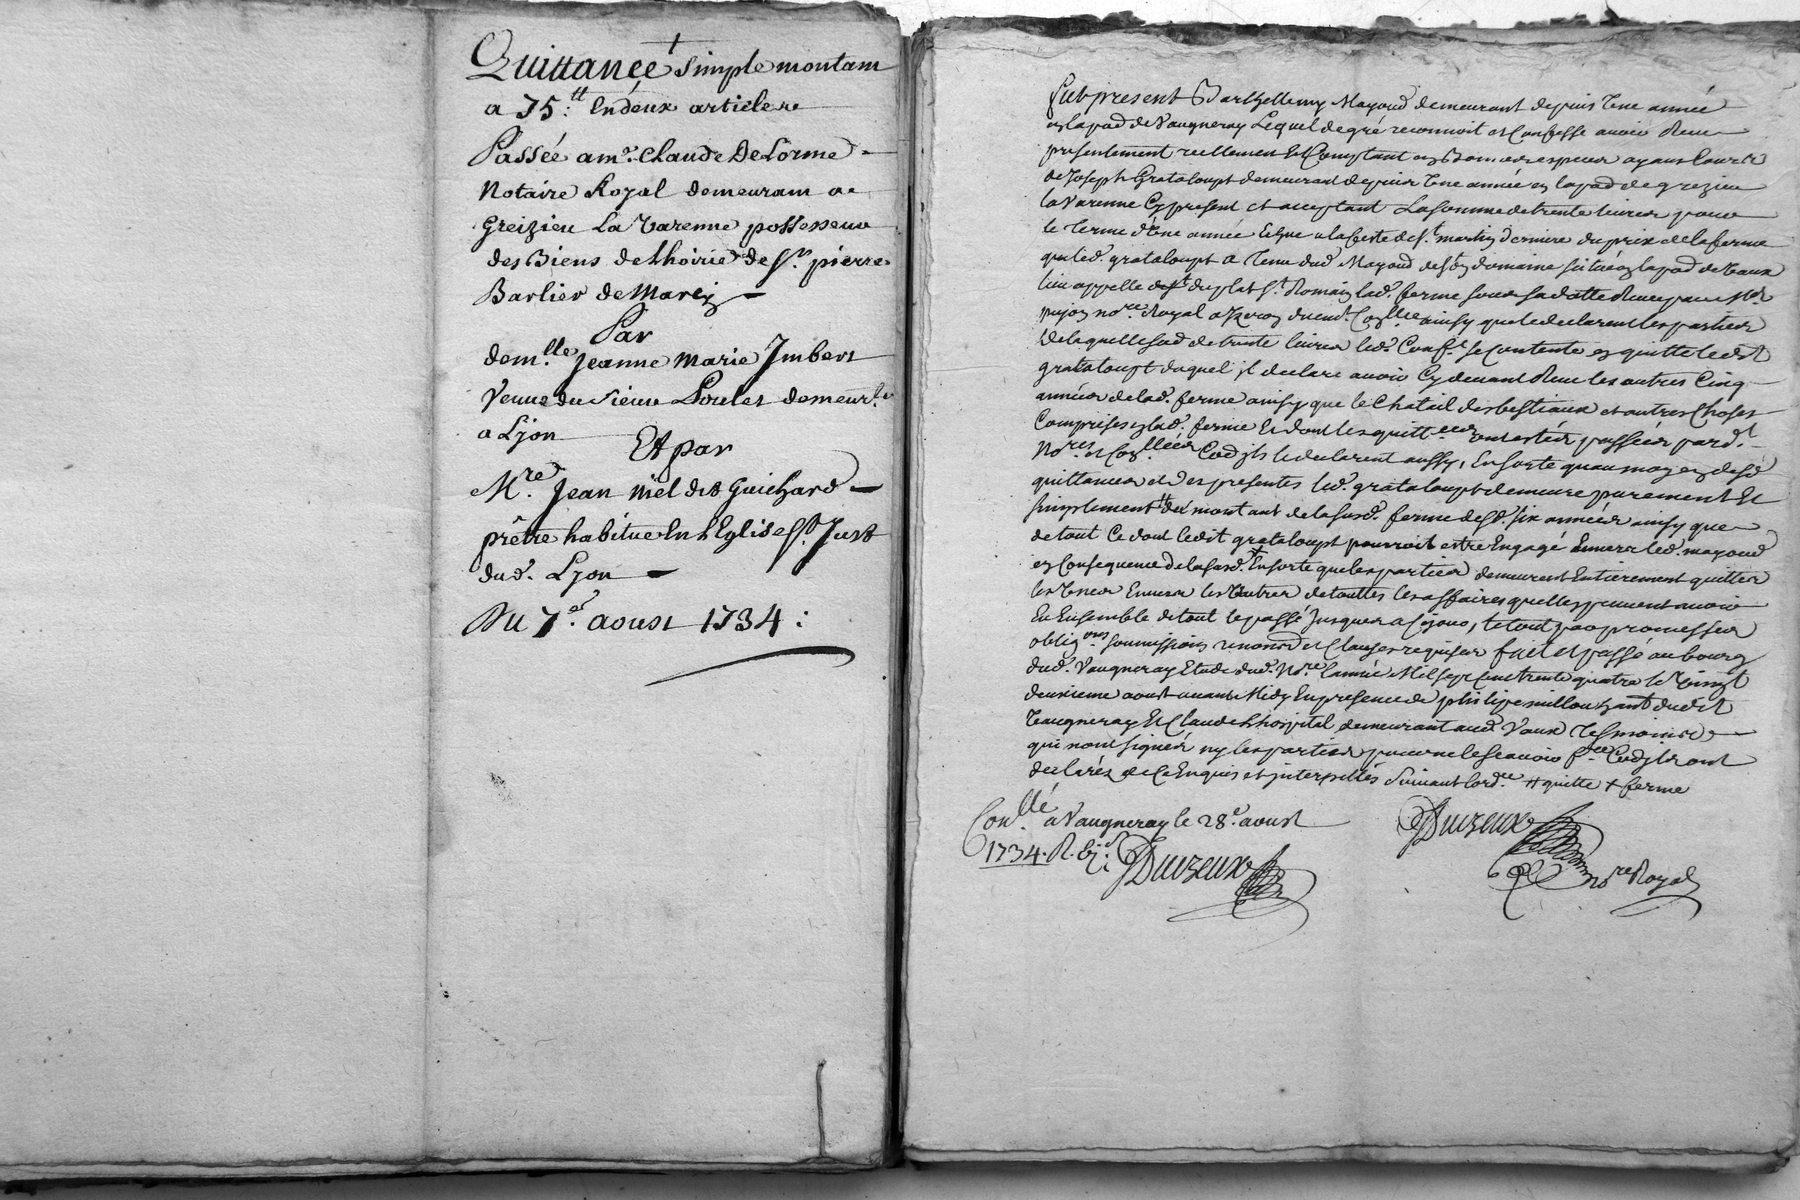 Quittance simple montam
a 75.tt En deux articles
Passée a me. Claude DeLorme
Notaire Royal demeurant a
Greizieu La Varenne possesseur
des Biens de Lhoirie de Sr. pierre
Barlier de Marcy
Par
demlle. Jeanne Marie Imbert
Veuue du sieur Poulet demeurte.
a Lyon
Et par
Mre. Jean niel des Guichard
prêtre habitue En L'Eglise St. Just
dud. Lyon
Du 7e. aoust 1734 :
fut present Barthellemy Mayoud demeurant depuis Une année
en la pad de Vaugneray Lequel de gré reconnoit et Confesse auoir Receu
presentement reellement Et Comptant en Bonnes especes ayant Cours
de Joseph Grataloupt demeurant depuis Une année en la pad de grezieu
la Varenne Cy present et acceptant La somme de trente liures pour
le terme d'Une année Echue a la feste de St. martin derniere du prix de la ferme
que led. grataloupt a tenu dud. Mayoud de son domaine scitué en la pad de Vaux
lieu appellé du plat St. Romain lad. ferme sous sa datte Receu par Me
nore. Royal ainsy que le declarent les parties
de laquelle sod de trente liures led. Conft. se Contente en quitte ledit
grataloupt duquel il declare auoir Cy deuant Receu les autres Cinq
années de lad. ferme ainsy que le Chatail des bestiaux et autres Choses
Comprises en lad. ferme Et dont les quittces ont estées passées pard.t
Nores. et Conllées Co᷆e ils le declarent aussy, En sorte qu'au moyen desd
quittances et des presentes led. grataloupt demeure purement Et
simplement tt du montant de la susd. ferme desd. six années ainsy que
de tout Ce dont ledit grataloupt pourroit estre Engagé Enuers led. mayoud
en Consequence de la susd. + En sorte que les parties demeurent Entierement quittes
les Unes Enuers les Autres de touttes les affaires quelles peuuent auoir
Eu Ensemble de tout le passé Jusques a Ce jour, le tout par promesses
obligons. soumissions renonons et Clauses requises fait et passé au bourg
dud. Vaugneray Etude dud. Nore. lannée Mil sept Cent trente quatre le Vingt
deuxieme aoust auant Midy En presence de philipe millou gant dudit
Vaugneray Et Claude Lhospital demeurant aud. Vaux Tesmoins
qui n'ont signées ny les parties pour ne le scauoir fre. Co᷆e ils ont
declarés de Ce Enquis et interpellés suiuant lordce. tt quitte + ferme
Conllé. a Vaugneray le 28e. aoust
1734. R.
Duizeux
Duizeux
nore Royal